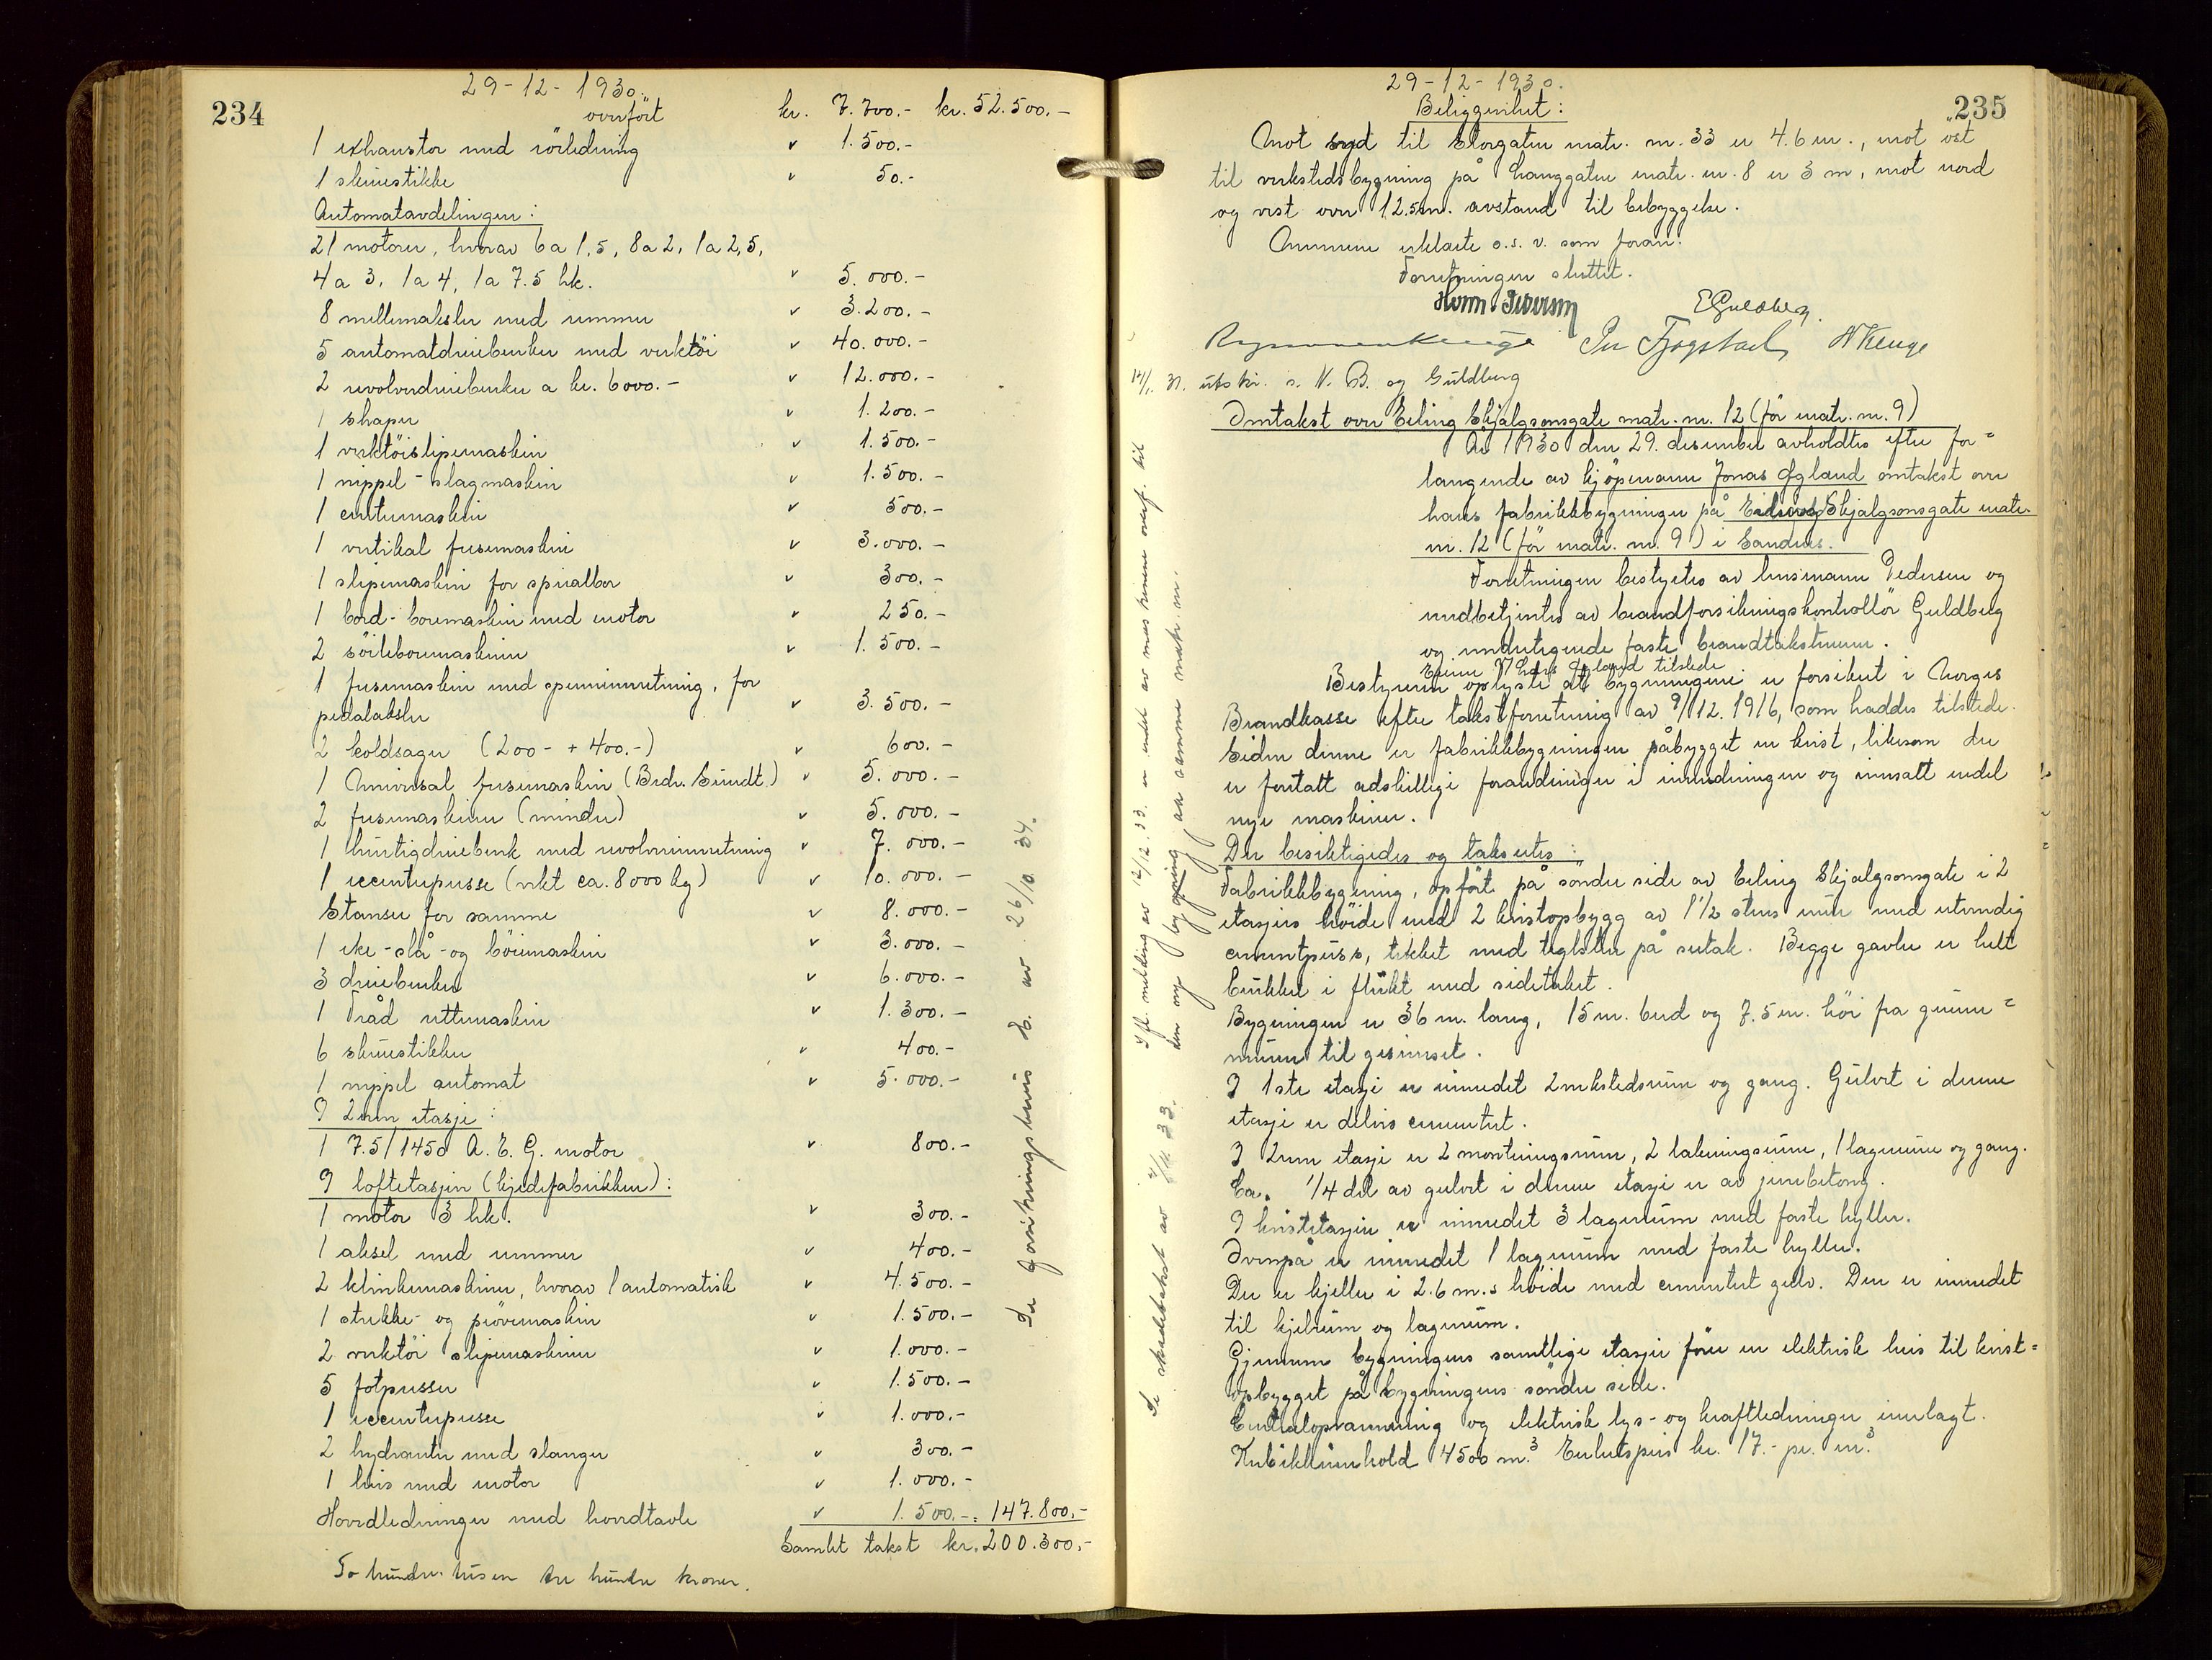 234
29-12-1930.
overfört kr. 7.700.- kr. 52.500.-
1 exhaustor med rörledning " 1.500.-
1 skruestikke " 50.-
Automatavdelingen:
21 motorer, hvorav 6 a 1,5, 8 a 2, 1 a 2,5,
4 a 3, 1 a 4, 1 a 7.5 hk. " 5.000.-
8 mellemaksler med remmer " 3.200.-
5 automatdreiebenker med verktöi " 40.000.-
2 revolverdreiebenker a kr. 6000.- " 12.000.-
1 shaper " 1.200.-
1 verktöislipemaskin " 1.500.-
1 nippel-slagmaskin " 1.500.-
1 centermaskin " 500.-
1 vertikal fresemaskin " 3.000.-
1 slipemaskin for spiralbor " 300.-
1 bord-boremaskin med motor " 250.-
2 söileboremaskiner " 1.500.-
1 fresemaskin med spenneinnretning, for
pedalaksler " 3.500.-
2 koldsager (200- + 400.-) " 600.-
1 Universal fresemaskin (Brdr. Sundt.) " 5.000.-
2 fresemaskiner (mindre) " 5.000.-
1 hurtigdreiebenk med revolverinnretning " 7.000.-
1 eccenterpresse (vekt ca. 8000 kg) " 10.000.-
Stanser for samme " 8.000.-
1 eke-slå-og böiemaskin " 3.000.-
3 dreiebenker " 6.000.-
1 Tråd rettemaskin " 1.300.-
6 skruestikker " 400.-
1 nippel automat " 5.000.-
I 2nen etasje:
1 7.5/1450 A. E. G. motor " 800.-
I loftetasjen (kjedefabrikken):
1 motor 3 hk. " 300.-
1 aksel med remmer " 400.-
2 klinkemaskiner, hvorav 1 automatisk " 4.500.-
1 strekke- og prövemaskin " 1.500.-
2 verktöi slipemaskiner " 1.000.-
5 fotpresser " 1.500.-
1 eccenterpresse " 1.000.-
2 hydranter med slanger " 300.-
1 heis med motor " 1.000.-
Hovedledninger med hovedtavle " 1.500.-= 147.800.-
Samlet takst kr. 200.300.-
To hundre tusen tre hundre kroner.
Se forsikringsbevis av 26/10. 34.
235
29-12-1930.
Beliggenhet:
Mot syd til Storgaten matr. nr. 33 er 4.6 m., mot öst
til verkstedsbygning på Langgaten matr. nr. 8 er 3 m, mot nord
og vest over 12.5m. avstand til bebyggelse.
Mennene erklærte o.s.v. som foran.
Forretningen sluttet.
Horm Pedersen E Guldberg.
Per Tjøgstad
14/1. 31. utskr. s. N. B. og Guldberg
Omtakst over Erling Skjalgsonsgate matr. nr. 12 (för matr. nr. 9)
År 1930 den 29. desember avholdtes efter for=
langende av kjöpmann Jonas Øgland omtakst over
hans fabrikkbygninger på Erling Skjalgsonsgate matr.
nr. 12 (för matr. nr. 9) i Sandnes.
Forretningen bestyrtes av lensmann Pedersen og
medbetjentes av brandforsikringskontrollör Guldberg
og undertegnede faste brandtakstmenn.
Eieren Øgland tilstede
Bestyreren oplyste at bygningene er forsikret i Norges
Brandkasse efter takstforretning av 9/12. 1916, som haddes tilstede.
Siden denne er fabrikkbygningen påbygget en kvist, likesom der
er foretatt adskillige forandringer i innredningen og innsatt endel
nye maskiner.
Der besiktigedes og takseres:
Fabrikkbygning, opfört på söndre side av Erling Skjalgsonsgate i 2
etasjers höide med 2 kvistopbygg av 1 1/2 stens mur med utvendig
cementpuss, tekket med teglsten på sutak. Begge gavler er helt
brukket i flukt med sidetaket.
Bygningen er 36 m. lang, 15 m. bred og 7.5 m. höi fra grunn=
muren til gesimset.
I 1ste etasje er innredet 2 verkstedsrum og gang. Gulvet i denne
etasje er delvis cementert.
I 2nen etasje er 2 monteringsrum, 2 lakeringsrum, 1 lagerrum og gang.
Ca. 1/4 del av gulvet i denne etasje er av jernbetong.
I kvistetasjen er innredet 3 lagerrum med faste hyller.
Ovenpå er innredet 1 lagerrum med faste hyller.
Der er kjeller i 2.6 m.s höide med cementert gulv. Den er innredet
til kjelrum og lagerrum.
Gjennem bygningens samtlige etasjer förer en elektrisk heis til kvist=
opbygget på bygningens söndre side.
Centralopvarmning og elektrisk lys- og kraftledninger innlagt.
Kubikkinnhold 4500 m.³ Enhetspris kr. 17.- pr. m.³
Ift. melding av 12/12. 33. er endel av maskinene overf. til
den nye bygning på samme matr. nr.
Se skadetakst av 33.